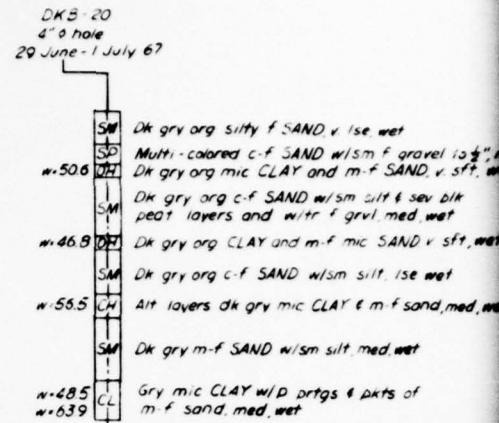 DKB-20
4" ø hole
29 June - 1 July 67
SM Dk gry org silty f SAND, v. lse, wet
SP Multi-colored c-f SAND w/sm f gravel to ½",
w=50.6 OH Dk gry org mic CLAY and m-f SAND, v. sft,
SM Dk gry org c-f SAND w/sm silt & sev blk
peat layers and w/tr f grvl, med, wet
w=46.8 OH Dk gry org CLAY and m-f mic SAND v sft, wet
SM Dk gry org c-f SAND w/sm silt, lse wet
w=56.5 CH Alt layers dk gry mic CLAY & m-f sand, med,
SM Dk gry m-f SAND w/sm silt, med, wet
w=48.5 CL Gry mic CLAY w/p prtgs & pkts of
w=63.9 m-f sand, med, wet